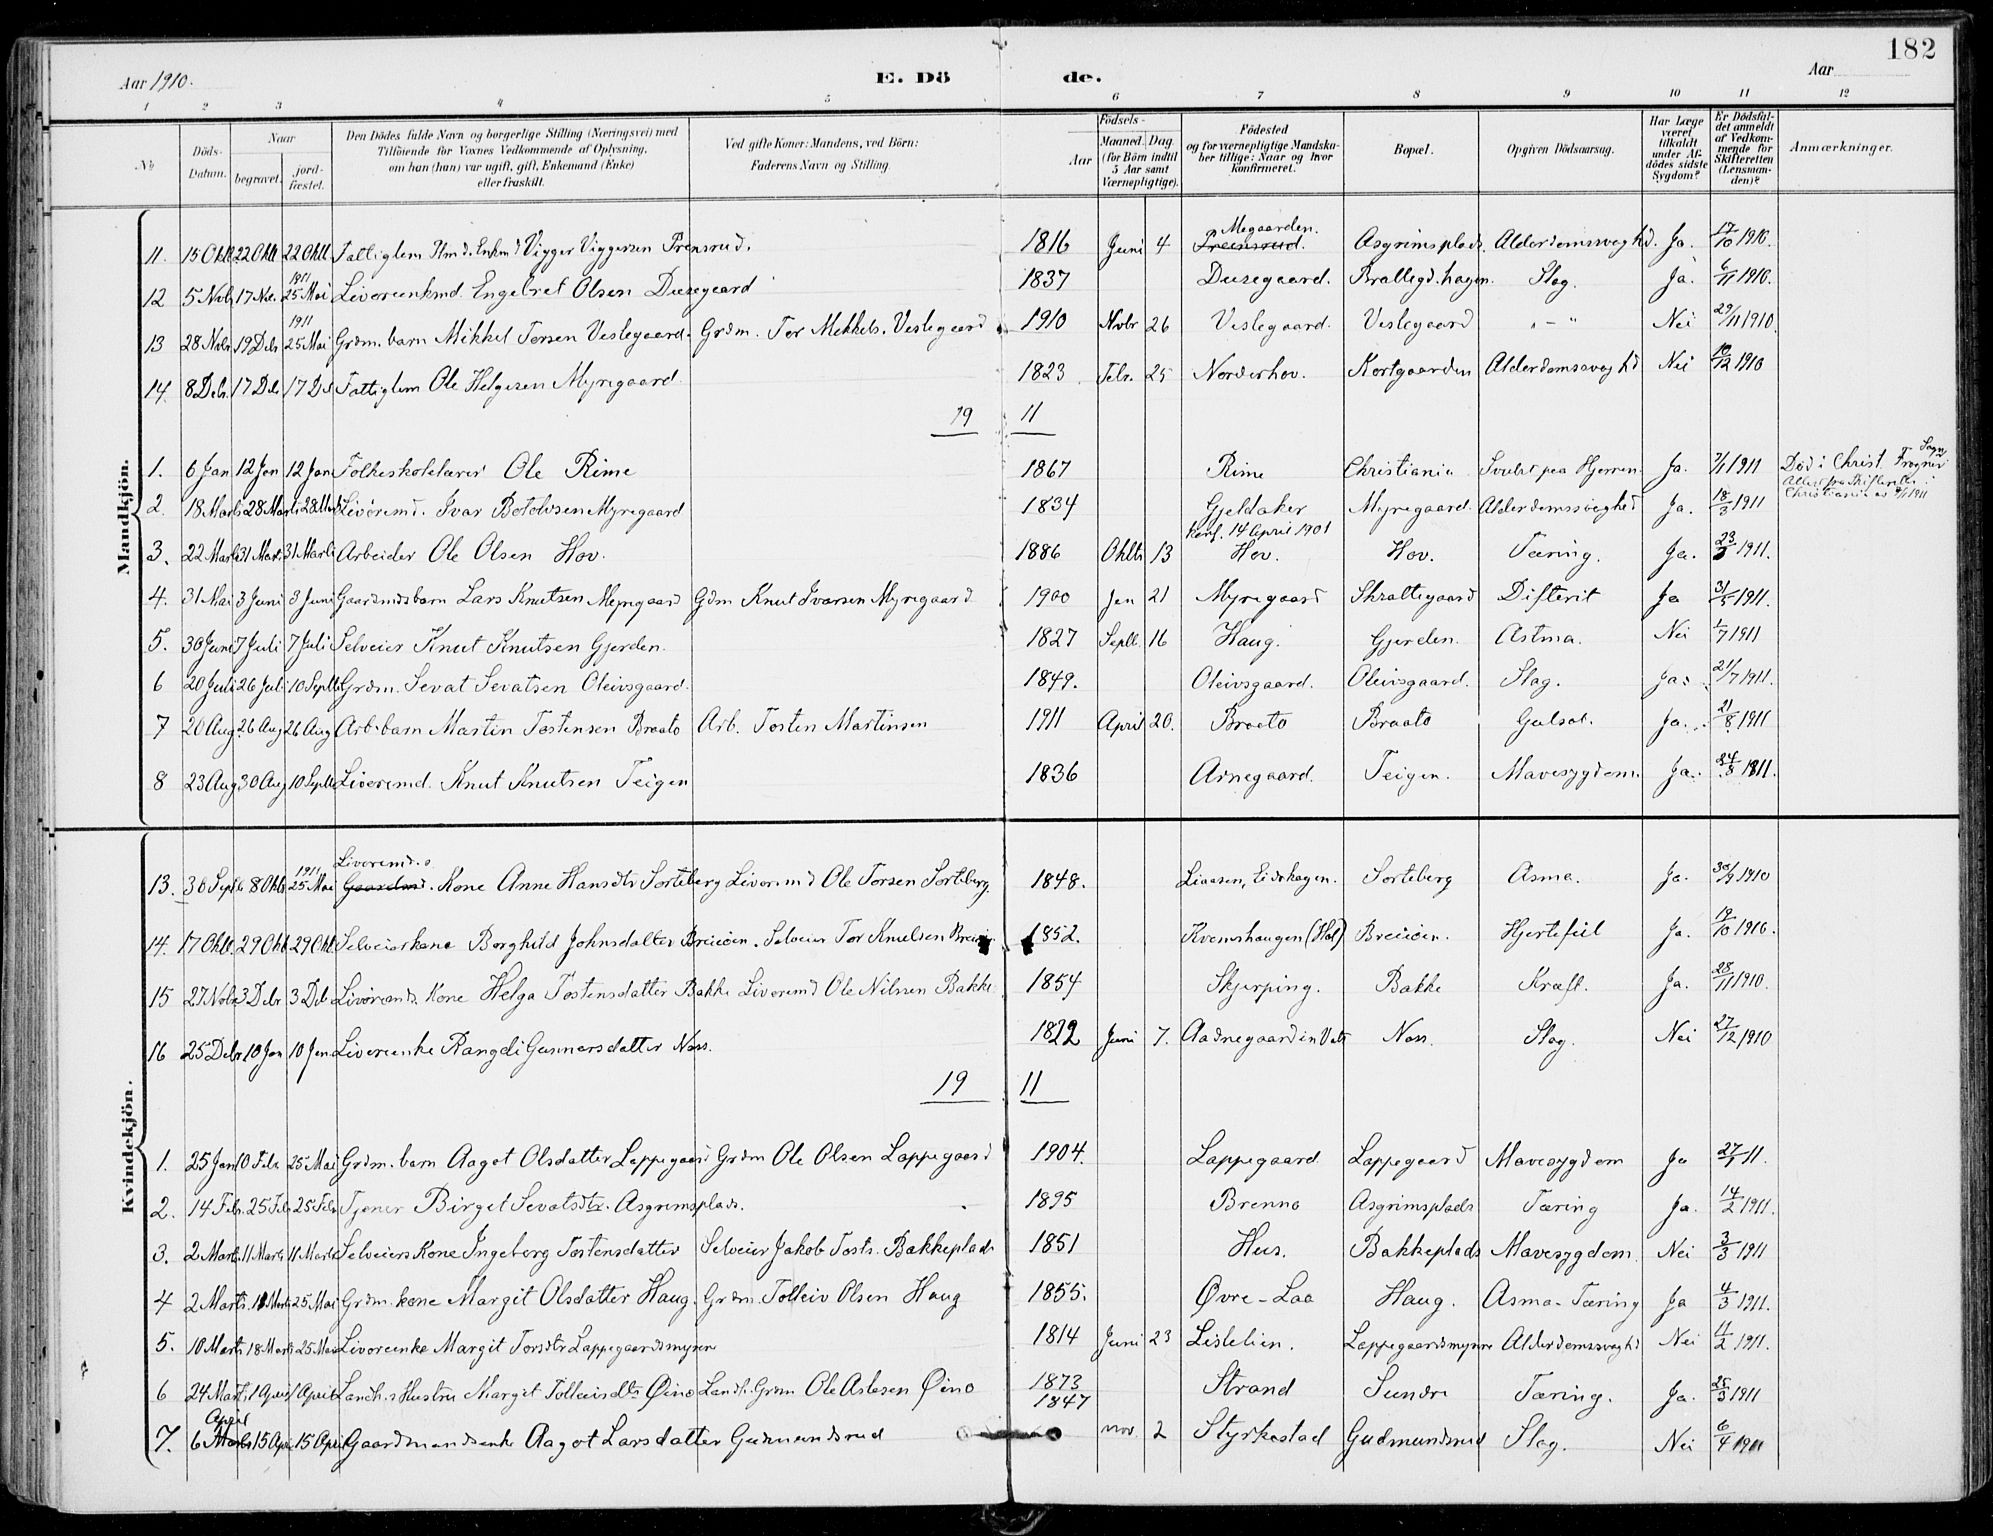 182
Aar 1910.
E. Dö de.
Aar
1 2 3 4 5 6 7 8 9 10 11 12
No
Döds-Datum.
Naar
begravet.
jord-fæstet.
Den Dödes fulde Navn og borgerlige Stilling (Næringsvei) med Tilföiende for Voxnes Vedkommende af Oplysning, om hun (han) var ugift, gift, Enkemand (Enke) eller fraskilt.
Ved gifte Koner: Mandens, ved Börn: Faderens Navn og Stilling.
Födsels-
Aar
Maaned. Dag.
(for Börn indtil 5 Aar samt Værnepligtige).
Födested og for værnepligtige Mandskaber tillige: Naar og hvor konfirmeret.
Bopæl.
Opgiven Dödsaarsag.
Har Læge været tilkaldt under Afdödes sidste Sygdom?
Er Dödsfaldet anmeldt af Vedkommende for Skifteretten (Lensmanden)?
Anmærkninger.
Mandkjön.
11. 15 Okt 22 Oktb 22 Oktb Fattiglem Viggo Viggosen Trensrud. 1816 Juni 4 Megaarden. Asgrimsplads. Alderdomssvaghd. Ja. 17/10 1910.
12 5 Nvbr 17 Nov. 1911 25 Mai Livøreenkmd. Engebret Olsen Dusegaard 1837 Dusegaard. Brattegd.hagen. Slag. Ja 6/11 1910.
13 28 Nvbr 19 Debr 1911 25 Mai Grdm. barn Mikkel Torsen Veslegaard. Grdm. Tor Mekkels. Veslegaard 1910 Nvbr 26 Veslegaard. Veslegaard " - " Nei 29/11 1910.
14. 8 Debr. 17 Deb 17 De Fattiglem Ole Helgesen Myregaard. 1823 Febr. 25 Norderhov. Kortgaarden Alderdomssvaghd Nei 10/12 1910
19 11
1. 6 Jan 12 Jan 12 Jan Folkeskolelærer Ole Rime 1867 Rime Christiania Svulst paa Hjernen Ja. 7/1 1911 Död i Christ. Frogner Sogn
Christiania
2. 18 Marts 28 Marts 28 Marts Livøremd. Ivar Botolvsen Myregaard 1834 Gjeldaker Myregaard. Alderdomssvaghed Ja. 18/3 1911
3. 22 Marts 31 Mart. 31 Marts Arbeider Ole Olsen Hov. 1886 Oktbr 13 Konf. 14 April 1901 Hov. Hov. Tæring. Ja. 23/3 1911.
4. 31 Mai 3 Juni 3 Juni Gaardmdsbarn Lars Knutsen Myregaard Gdm Knut Ivarsen Myregaard 1900 Jan 21 Myregaard Skrattegaard Difterit Ja 31/5 1911.
5. 30 Juni 7 Juli 7 Juli Selveier Knut Knutsen Gjerden. 1827 Septb. 16 Haug. Gjerden. Astma. Nei 1/7 1911
6 20 Juli 26 Juli 10 Septb Grdm. Sevat Sevatsen Oleivsgaard. 1849. Oleivsgaard. Oleivsgaard. Slag. Ja. 21/7 1911.
7 20 Aug 26 Aug 26 Aug Arb. barn Martin Tostensen Braato Arb. Tosten Martinsen 1911 April 20. Braato Braato Gulsot. Ja. 21/8 1911
8 23 Aug 30 Aug 10 Septb Livøremd. Knut Knutsen Teigen 1836 Arnegaard. Teigen. Mavesygdom. Ja. 24/8 1911.
Kvindekjön.
13. 30 Septb 8 Oktb 1911 25 Mai Livøremd.s Gaardmd. Kone Anne Hansdtr Sorteberg Livøremd Ole Torsen Sorteberg. 1848. Liaasen, Eidshagen. Sorteberg Asma. Ja. 30/9 1910
14. 17 Oktb. 29 Okt 29 Okt Selveierkone Borghild Johnsdatter Breiien. Selveier Tor Knutsen 1852. Kvemshaugen (Hol). Breiien. Hjertefeil Ja. 19/10 1910.
15 27 Nvbr 3 Debr 3 Deb Livøremds Kone Helga Tostensdatter Bakke Livøremd Ole Nilsen Bakke. 1854 Skjerping. Bakke Kræft. Ja. 28/11 1910.
16 25 Debr 10 Jan 10 Jan Livøreenke Rangdi Gunnarsdatter Næss. 1822 Juni 7. Aadnegaard in Vats Næss. Slag. Nei 27/12 1910
19 11
1. 25 Jan 10 Febr 25 Mai Grdm. barn Aagot Olsdatter Lappegaard Grdm Ole Olsen Lappegaard 1904. Lappegaard Lappegaard Mavesygdom Ja 27/1 11.
2. 14 Febr. 25 Feb 25 Febr Tjener Birget Sevatsdtr. Asgrimsplads. 1895 Brenno Asgrimsplads Tæring Ja. 14/2 1911.
3. 2 Marts. 11 Marts 11 Marts Selveiers Kone Ingeborg Tostensdatter Selveier Jakob Tosts. Bakkeplads 1851 Hus. Bakkeplads Mavesygdom. Nei 3/3 1911
4 2 Marts. 11 Marts 25 Mai Grdm. kone Margit Olsdatter Haug. Grdm. Tolleiv Olsen Haug 1855. Øvre-Laa Haug. Asma-Tæring Ja 4/3 1911.
5. 10 Marts 18 Marts 25 Mai Livøreenke Margit Torsdtr Lappegaardsmyren 1814 Juni 23 Lislelien. Lappegaardsmyren Alderdomssvaghd Nei 11/2 1911.
6 24 Marts. 1 April 1 April Landh. Hustru Margit Tolleivsdtr Øino Landh. Grdm Ole Aslesen Øino 1873 Strand Sundre Tæring. Ja. 25/3 1911
7. 6 April Marts 15 April 15 April Gaardmandsenke Aagot Larsdatter Gudmundsrud 1847 nov. 2 Styrkestad Gudmundsrud Slag. Nei 6/4 1911